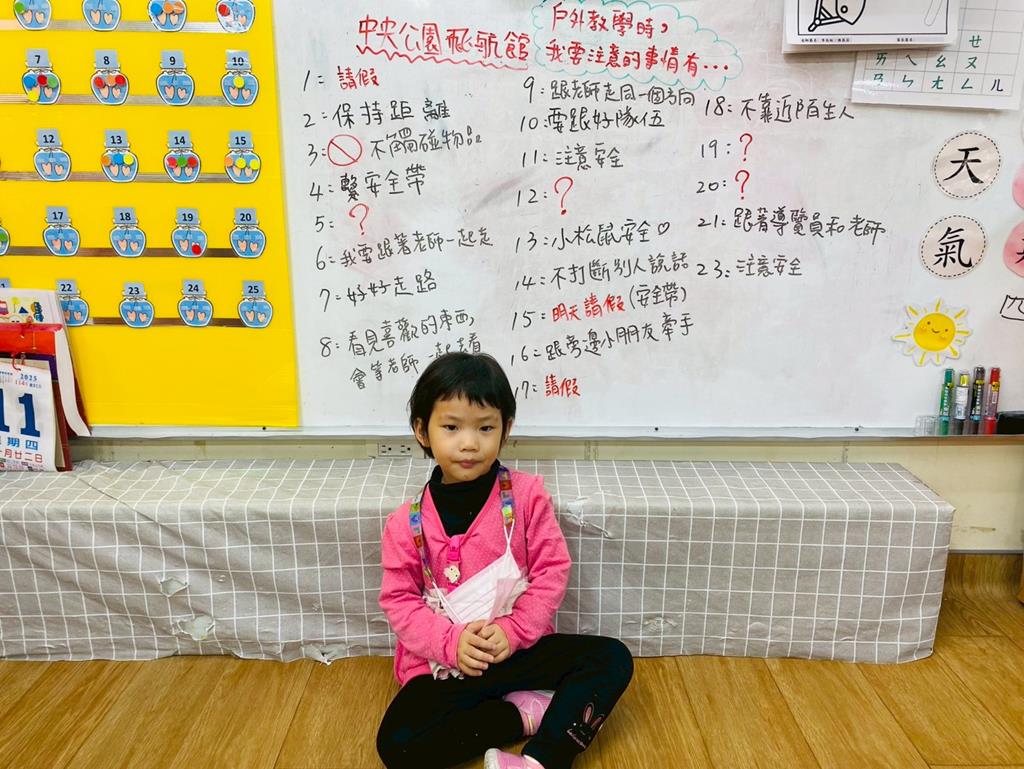 中央公園 飛航館
戶外教學時,
我要注意的事情有...
1= 請假
2=保持距離
3= 不觸碰物品
4=繫安全帶
5= ?
6=我要跟著老師一起走
7=好好走路
8=看見喜歡的東西,
會等老師一起去看
9=跟老師走同一個方向
10=要跟好隊伍
11=注意安全
12= ?
13=小松鼠安全♡
14=不打斷別人說話
15=明天請假(安全帶)
16=跟旁邊小朋友牽手
17=請假
18=不靠近陌生人
19= ?
20= ?
21=跟著導覽員和老師
23=注意安全
7 8 9 10
12 13 14 15
17 18 19 20
22 23 24 25
2025
11
期四
月廿二日
ㄞ ㄟ ㄠ ㄡ
ㄢ ㄣ ㄤ ㄥ ㄦ
ㄝ
天
氣